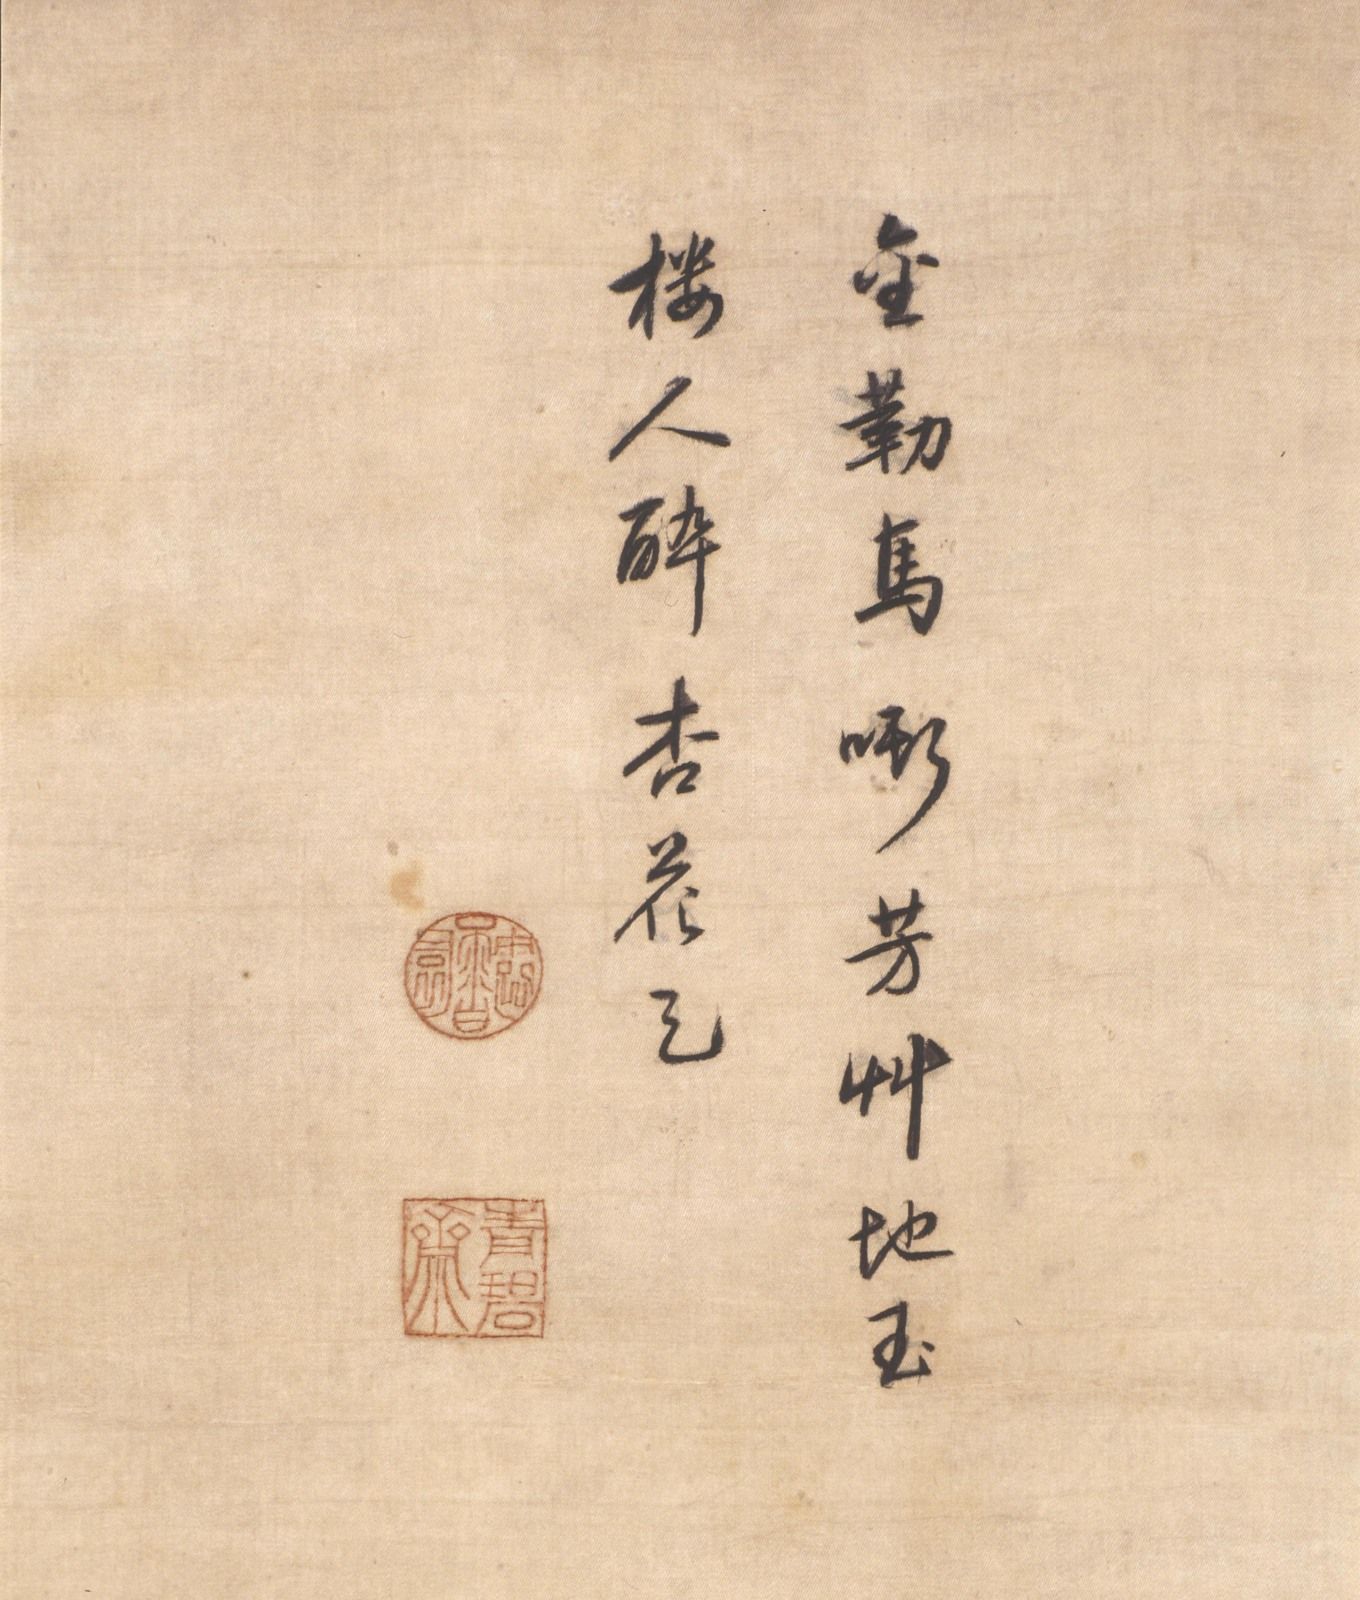 金勒馬嘶芳艸地玉
樓人醉杏花天
青碧齋